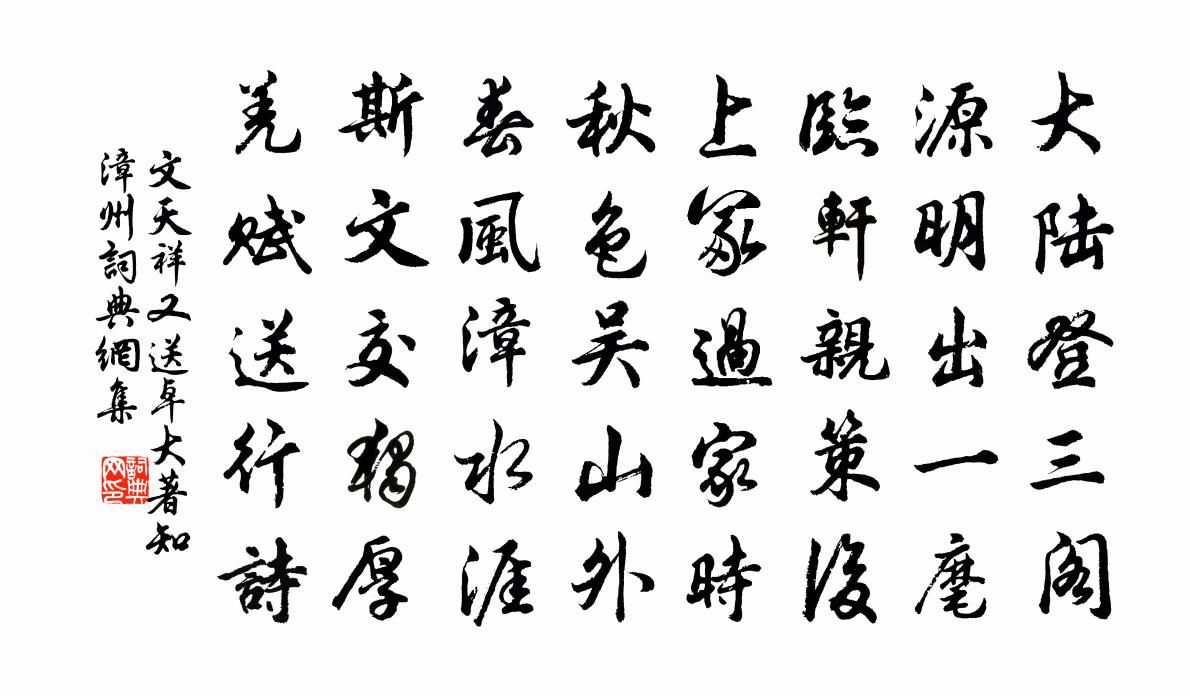 大陆登三阁
源明出一麾
臨軒親策後
上冢過家時
秋色吴山外
春風漳水涯
斯文交獨厚
羌赋送行詩
文天祥又送卓大著知
漳州詞典網集
詞典网印